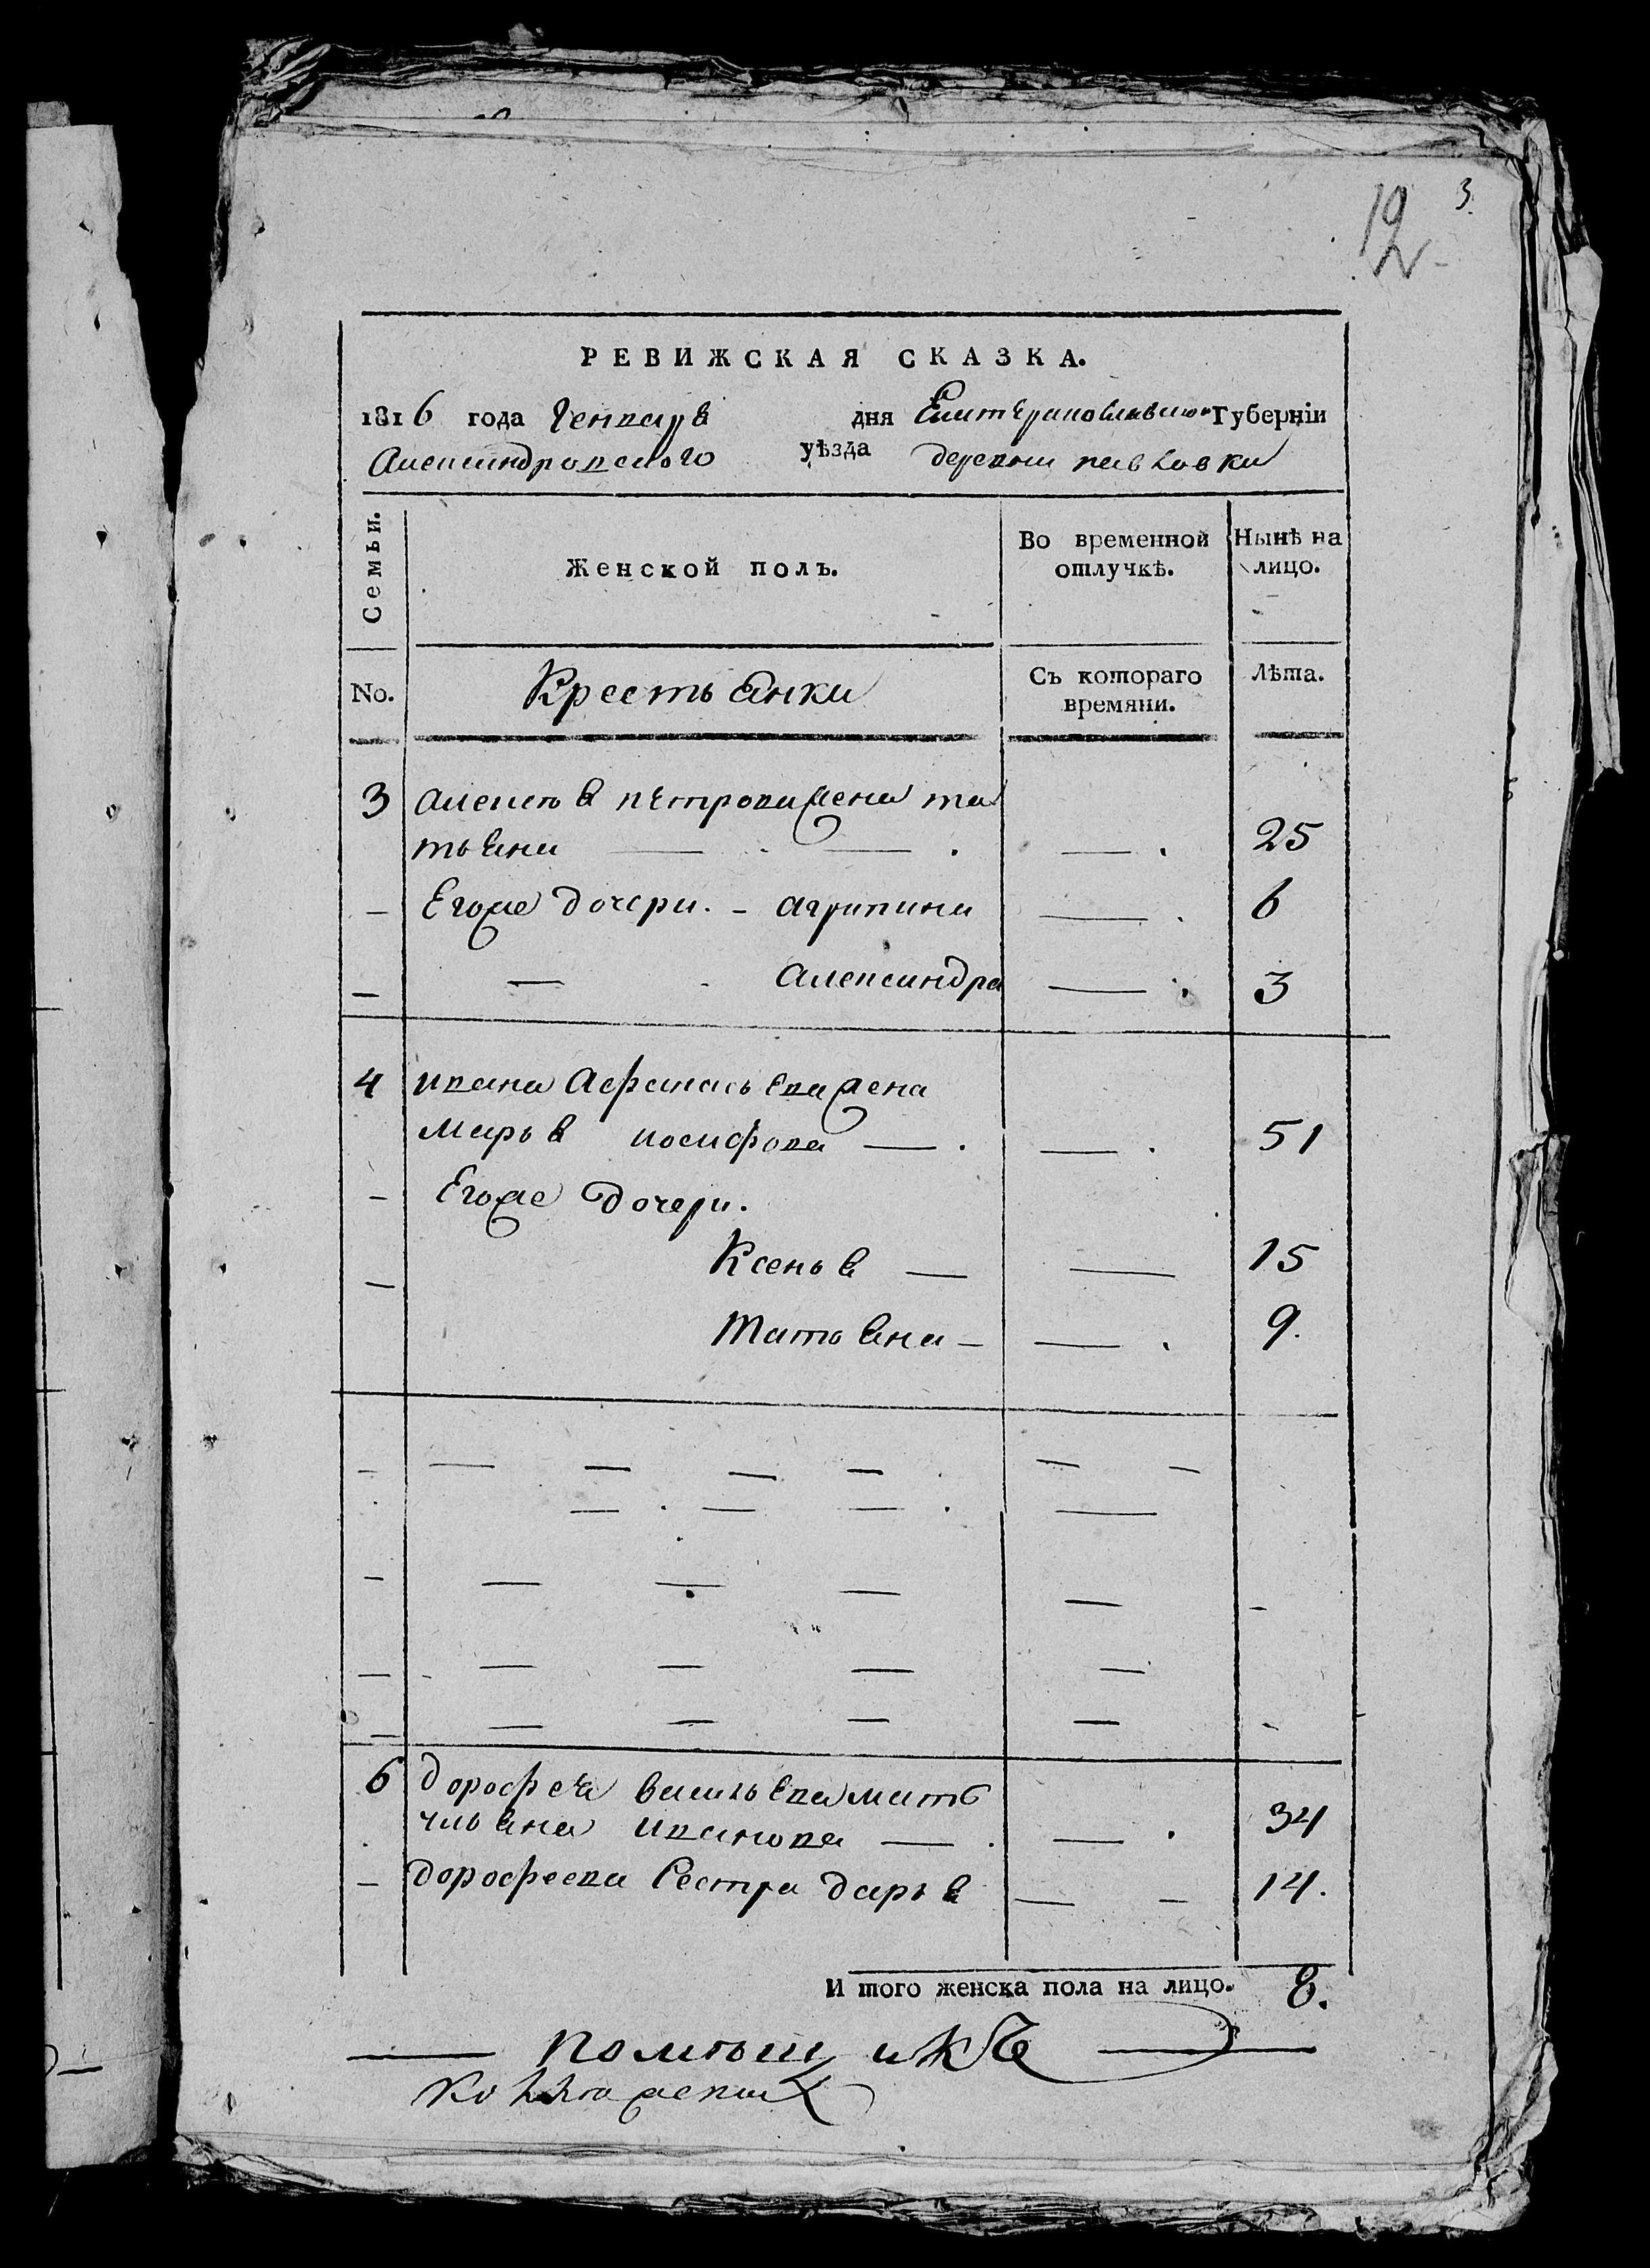 3.
12
РЕВИЖСКАЯ СКАЗКА.
1816 года Генваря дня Екатеринославской Губерніи
Александровского уѣзда деревни павловки
Семьи. Женской полъ. Во временной отлучкѣ. Нынѣ на лицо.
No. Крестьянки Съ котораго времяни. Лѣта.
3 алексѣя петрова жена та
тьяна — . — . — . 25
— Егоже дочери. - агрипина — . 6
— — - александра — . 3
4 ивана Афанасьева жена
марья иосифова — . — . 51
— Егоже дочери.
— Ксенья — — 15
татьяна — — . 9.
6 дорофея васильева мать
ульяна иванова — . — . 34
— дорофеева сестра дарья — — 14.
И того женска пола на лицо. 8.
— помѣщикъ —